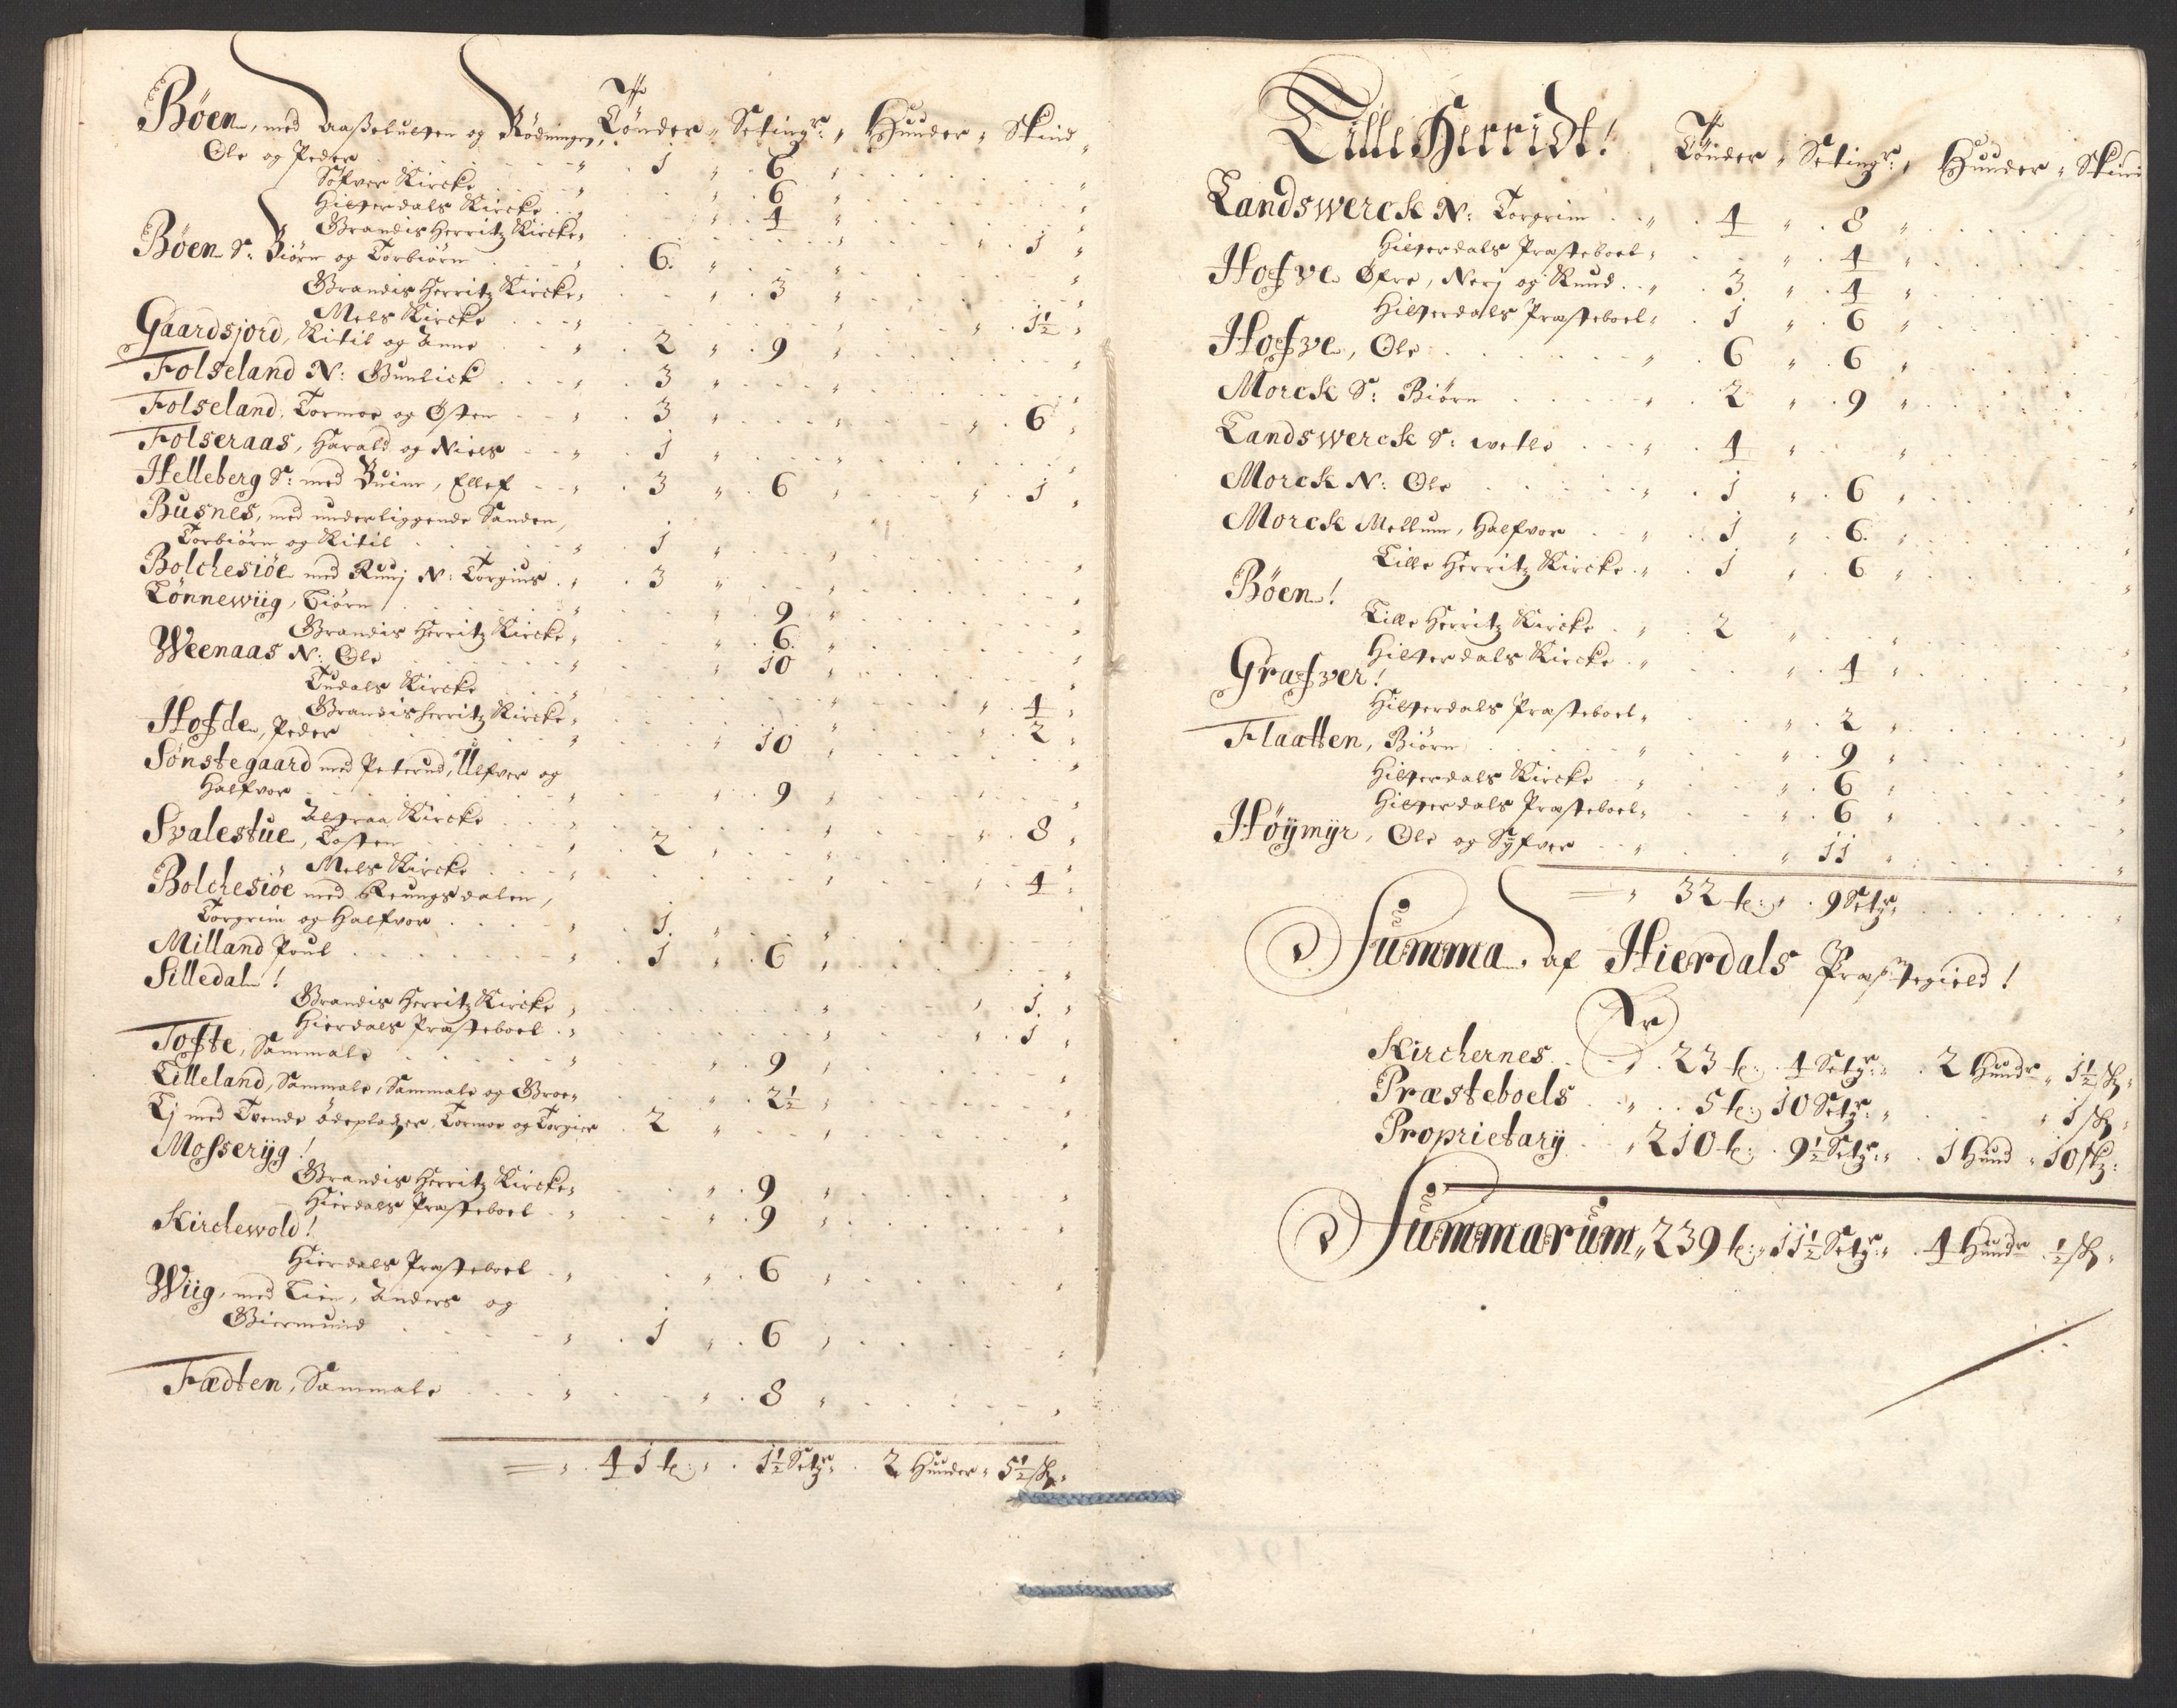 Böen, med og Rödningen, Tönder " Setingr: " Huuder " Skind "
Ole og Peder " 1 " 6 "
Söfver Kircke " 6 "
Hitterdals Kircke " 4 "
Grandis Herritz Kircke " 1 "
Böen Sr: Biörn og Torbiörn " 6. "
Grandis Herritz Kircke " 3 "
Mels Kircke " 1½ "
Gaardsjord, Kitil og Anne " 2 " 9 "
Folseland N: Gunlick " 3 "
Folseland, Tormoe og Østen " 3 " 6 "
Folseraas, Harald og Niels " 1 "
Helleberg Sr: med Buine, Ellef " 3 " 6 " 1 "
Busnes, med underliggende Sanden,
Torbiörn og Kitil " 1 "
Bolchesiöe med Ruuj N: Torgiuus " 3 "
Tönnewiig, Biörn " 9 "
Grandis Herritz Kircke " 6. "
Weenaas N: Ole " 10 "
Tudals Kircke " 4 "
Grandis herritz Kircke " 2 "
Hofde, Peder " 10 "
Sönstegaard med Peterud, Ulfver og
Halfvor " 9 "
Atraa Kircke " 8 "
Svalestue, Tosten " 2 "
Mels Kircke " 4 "
Bolchesiöe med Reungsdalen,
Torgrim og Halfvor " 1. "
Milland Poul " 1 " 6 "
Silledal!
Grandis Herritz Kircke " 1. "
Hierdals Præsteboel " 1 "
Tofte, Sammale " 9 "
Lilleland, Sammale, Sammale og Groe " 2½ "
Lj med Tvende ödepladzer, Tormoe og Torgier 2 "
Mosseryg!
Grandis Herritz Kircke " 9 "
Hierdals Præsteboel " 9 "
Kirchewold!
Hierdals Præsteboel " 6 "
Wiig, med Lien, Anders og
Giermund " 1 " 6 "
Fædten, Sammale " 8 "
= " 41 t: " 1½ Setgr: 2 Huuder " 5½ sk "
Lille Herridt! Tönder " Setingr: " Huuder " Skind
Landswerck N: Torgrim " 4 " 8 "
Hitterdals Præsteboel " 4 "
Hofve Øfre, Nerj og Knud " 3 " 4 "
Hitterdals Præsteboel " 1 " 6 "
Hofve, Ole " 6 " 6 "
Morck Sr: Biörn " 2 " 9 "
Landswerck Sr: wetle " 4 "
Morck N: Ole " 1 " 6 "
Morck Mellum, Halfvor " 1 " 6. "
Lille Herritz Kircke " 1 " 6 "
Böen!
Lille Herritz Kircke " 2 "
Hitterdals Kircke " 4 "
Grafver!
Hitterdals Præsteboel " 2 "
Flaatten, Biörn " 9 "
Hitterdals Kircke " 6 "
Hitterdals Præsteboel " 6 "
Höymyr, Ole og Syfver " 11 "
= " 32 t: " 9 Setgr:
Summa af Hierdals Præstegield!
Er
Kirchernes " 23 t: 4 Setgr: " 2 Hundr " 1½ sk "
Præsteboels " 5 t: 10 Setgr: " " 1 sk "
Proprietary " 210 t: 9½ Setgr: " 1 Hund " 10 sk:
Summarum " 239 t: " 11½ Setgr: " 4 Hundr ½ sk "